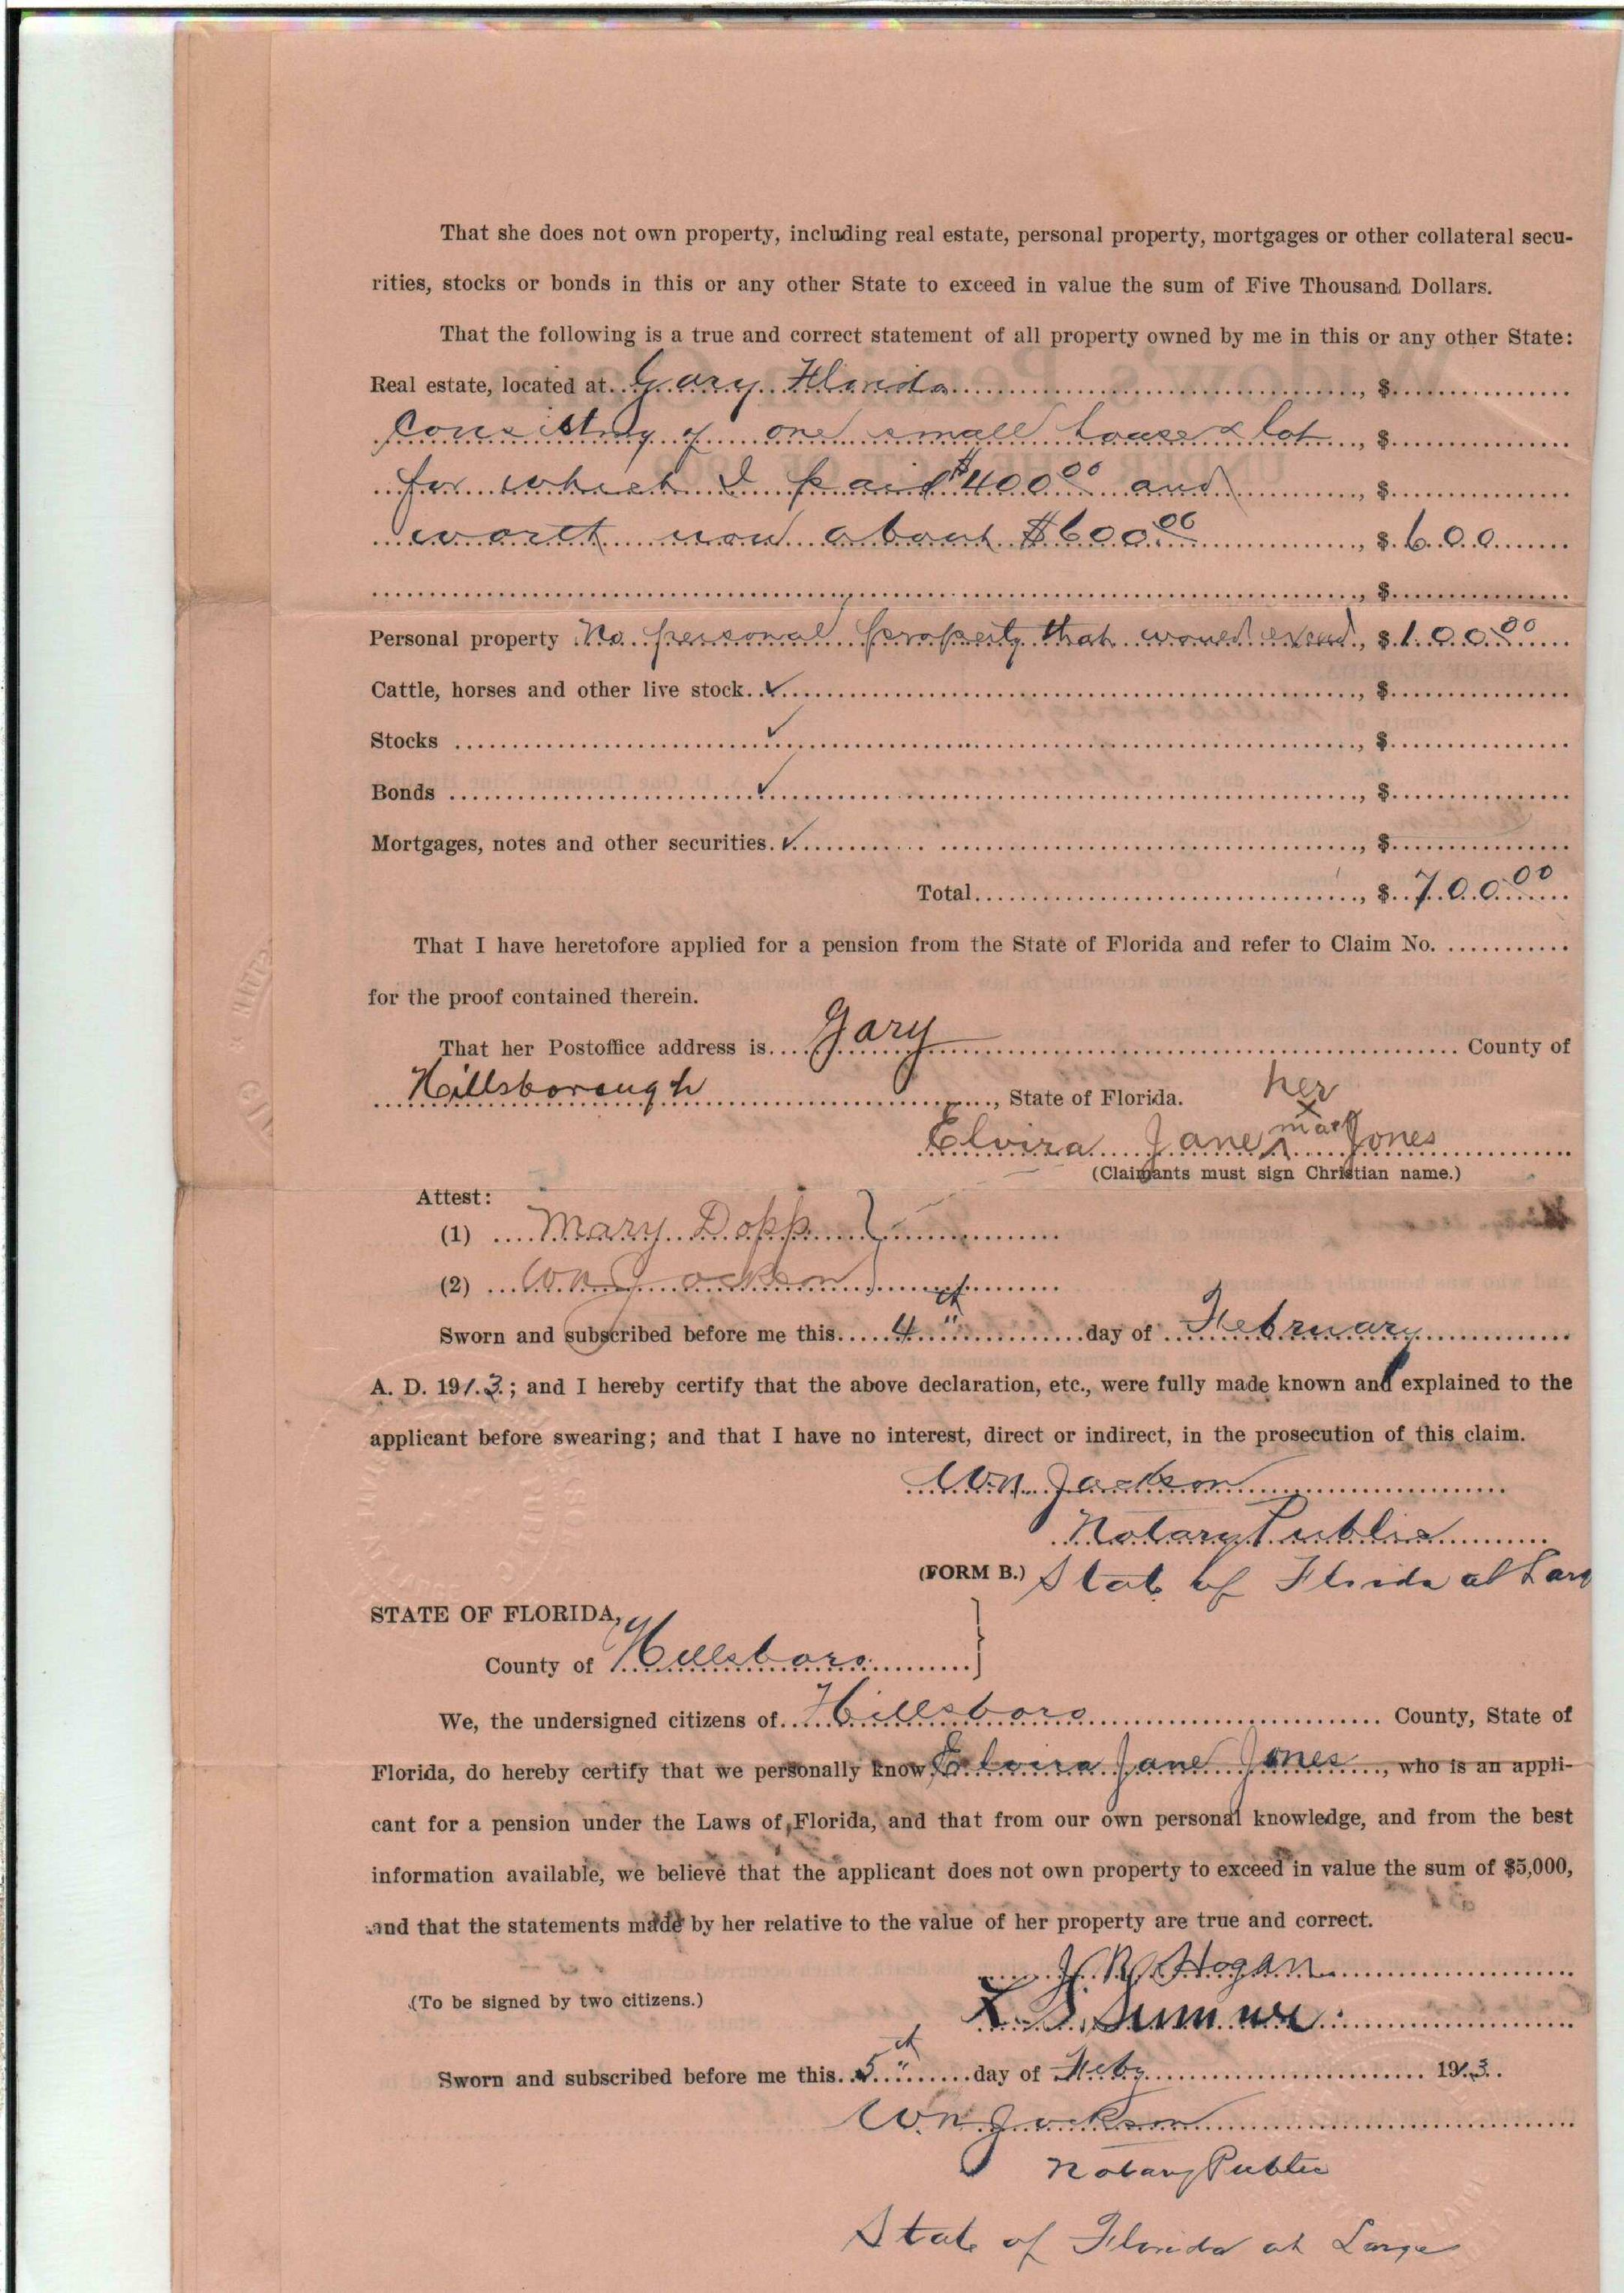 That she does not own property, including real estate, personal property, mortgages or other collateral secu-
rities, stocks or bonds in this or any other State to exceed in value the sum of Five Thousand Dollars.
That the following is a true and correct statement of all property owned by me in this or any other State:
Real estate, located at Gary Florida, $
Consisting of one small house & lot, $
for which I paid $400.00 and, $
worth now about $600.00, $600
, $
Personal property No personal property that would exceed, $100.00
Cattle, horses and other live stock. ✓, $
Stocks ✓, $
Bonds ✓, $
Mortgages, notes and other securities. ✓, $
Total, $700.00
That I have heretofore applied for a pension from the State of Florida and refer to Claim No.
for the proof contained therein.
That her Postoffice address is Gary County of
Hillsborough, State of Florida.
her
Elvira Jane x Jones
mark
(Claimants must sign Christian name.)
Attest:
(1) Mary Dopp
(2) W.N. Jackson
Sworn and subscribed before me this 4th day of February
A. D. 1913; and I hereby certify that the above declaration, etc., were fully made known and explained to the
applicant before swearing; and that I have no interest, direct or indirect, in the prosecution of this claim.
W.N. Jackson
Notary Public
(FORM B.) State of Florida at Larg
STATE OF FLORIDA,
County of Hillsboro
We, the undersigned citizens of Hillsboro County, State of
Florida, do hereby certify that we personally know Elvira Jane Jones, who is an appli-
cant for a pension under the Laws of Florida, and that from our own personal knowledge, and from the best
information available, we believe that the applicant does not own property to exceed in value the sum of $5,000,
and that the statements made by her relative to the value of her property are true and correct.
Hogan
(To be signed by two citizens.)
Sworn and subscribed before me this 5th day of Feby 1913.
W.N. Jackson
Notary Public
State of Florida at Large